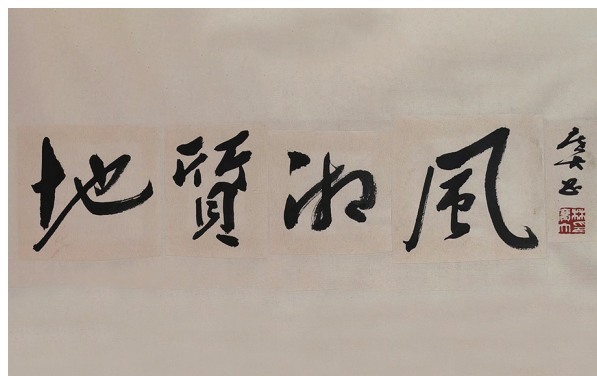 地質湘風